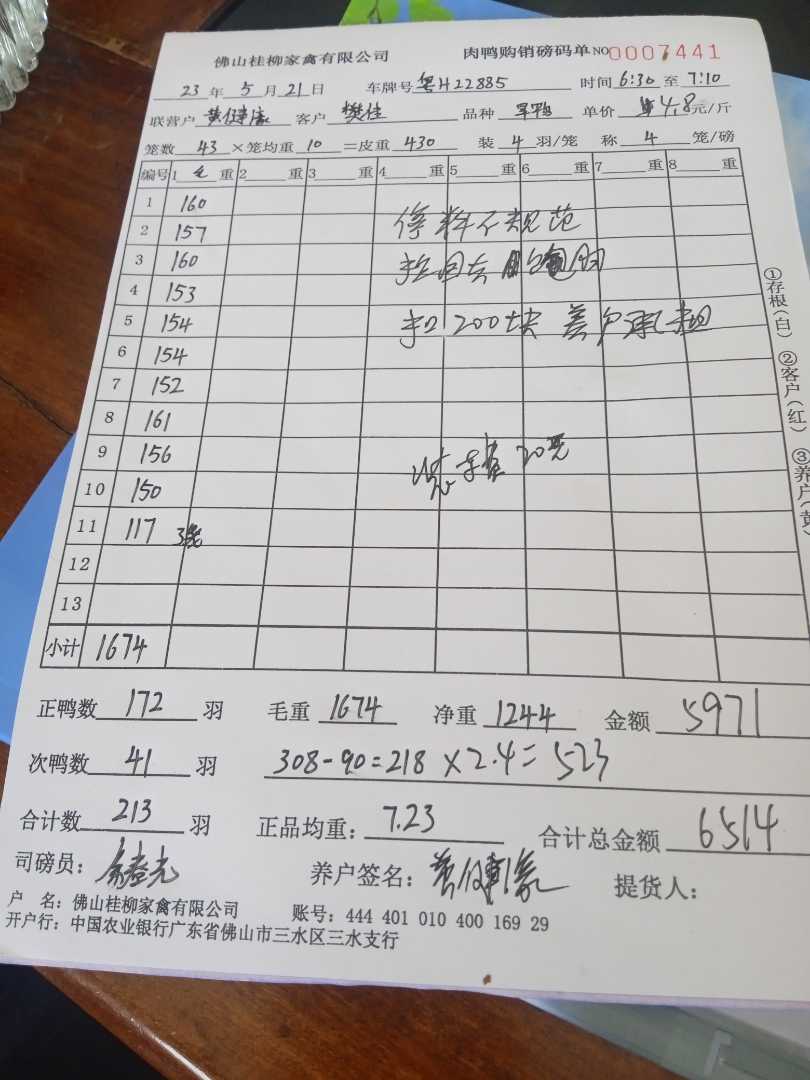 佛山桂柳家禽有限公司 肉鸭购销磅码单 NO 0007441
23 年 5 月 21 日 车牌号 粤H22885 时间 6:30 至 7:10
联营户 黄健豪 客户 樊佳 品种 单价 4.8 元/斤
笼数 43 ×笼均重 10 =皮重 430 装 4 羽/笼 称 4 笼/磅
编号 1 毛 重 2 重 3 重 4 重 5 重 6 重 7 重 8 重
1 160
2 157 停料不规范
3 160
4 153
5 154 扣200块 养户承担
6 154
7 152
8 161
9 156 20元
10 150
11 117 3笼
12
13
小计 1674
正鸭数 172 羽 毛重 1674 净重 1244 金额 5971
次鸭数 41 羽 308-90=218 ×2.4= 523
合计数 213 羽 正品均重: 7.23 合计总金额 6514
司磅员: 养户签名: 黄健豪 提货人:
户 名: 佛山桂柳家禽有限公司 账号: 444 401 010 400 169 29
开户行: 中国农业银行广东省佛山市三水区三水支行
①存根(白) ②客户(红) ③养户(黄)